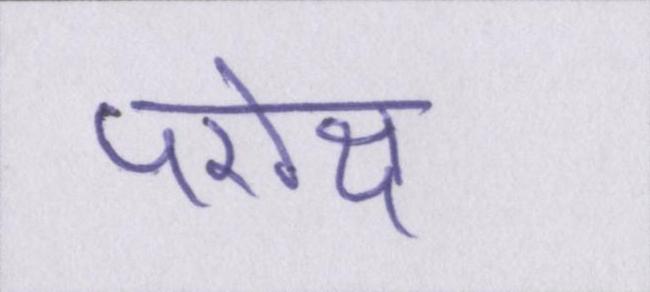 परोक्ष